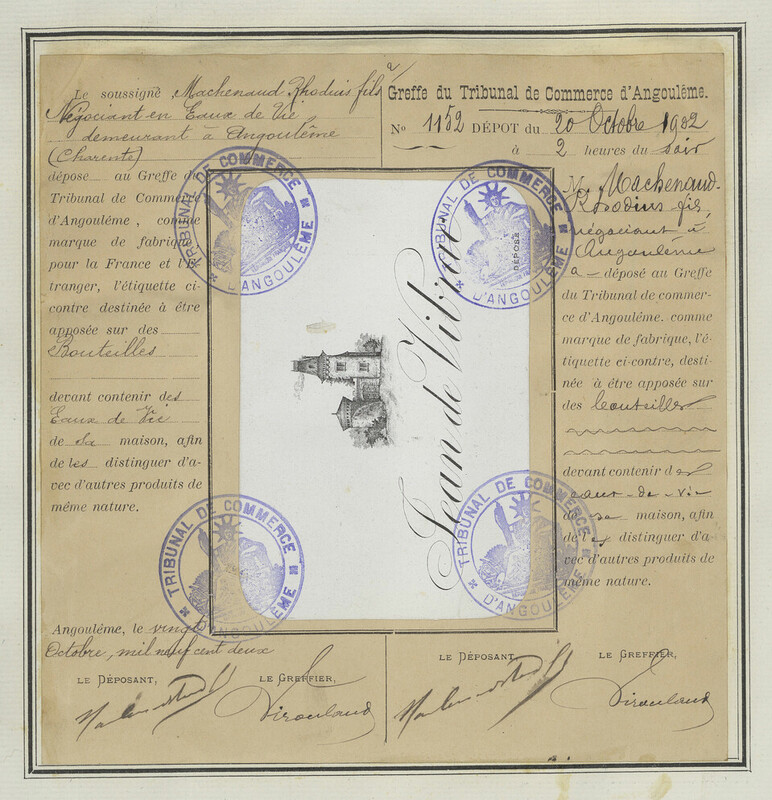 Le soussigné, Machenaud-Rhodius fils
Négociant en Eaux de Vie
demeurant à Angoulême
(Charente)
dépose au Greffe du
Tribunal de Commerce
d'Angoulême, comme
marque de fabrique
pour la France et l'É-
tranger, l'étiquette ci-
contre destinée à être
apposée sur des
Bouteilles
devant contenir des
Eaux de Vie
de sa maison, afin
de les distinguer d'a-
vec d'autres produits de
même nature.
Angoulême, le vingt
Octobre, mil neuf cent deux
LE DÉPOSANT, LE GREFFIER,
Jean de Vibrac
TRIBUNAL DE COMMERCE
D'ANGOULÊME
TRIBUNAL DE COMMERCE
D'ANGOULÊME
DÉPOSÉ
TRIBUNAL DE COMMERCE
D'ANGOULÊME
TRIBUNAL DE COMMERCE
D'ANGOULÊME
Greffe du Tribunal de Commerce d'Angoulême.
No 1152 DÉPOT du 20 Octobre 1902
à 2 heures du soir
M. Machenaud-
Rhodius fils,
négociant à
Angoulême
a déposé au Greffe
du Tribunal de commer-
ce d'Angoulême, comme
marque de fabrique, l'é-
tiquette ci-contre, desti-
née à être apposée sur
des bouteilles
devant contenir des
eaux-de-vie
de sa maison, afin
de les distinguer d'a-
vec d'autres produits de
même nature.
LE DÉPOSANT, LE GREFFIER,